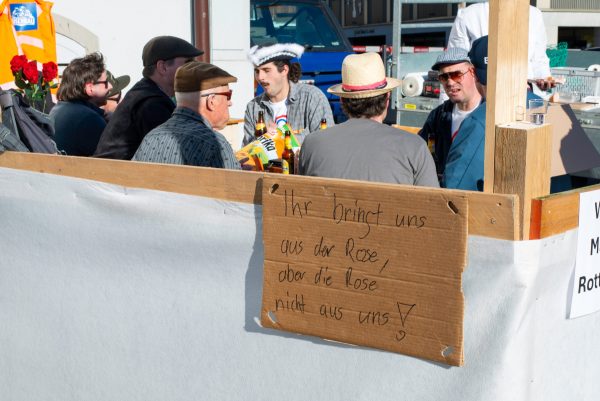 Ihr bringt uns
aus der Rose,
aber die Rose
nicht aus uns!
rika
W
M
Rott